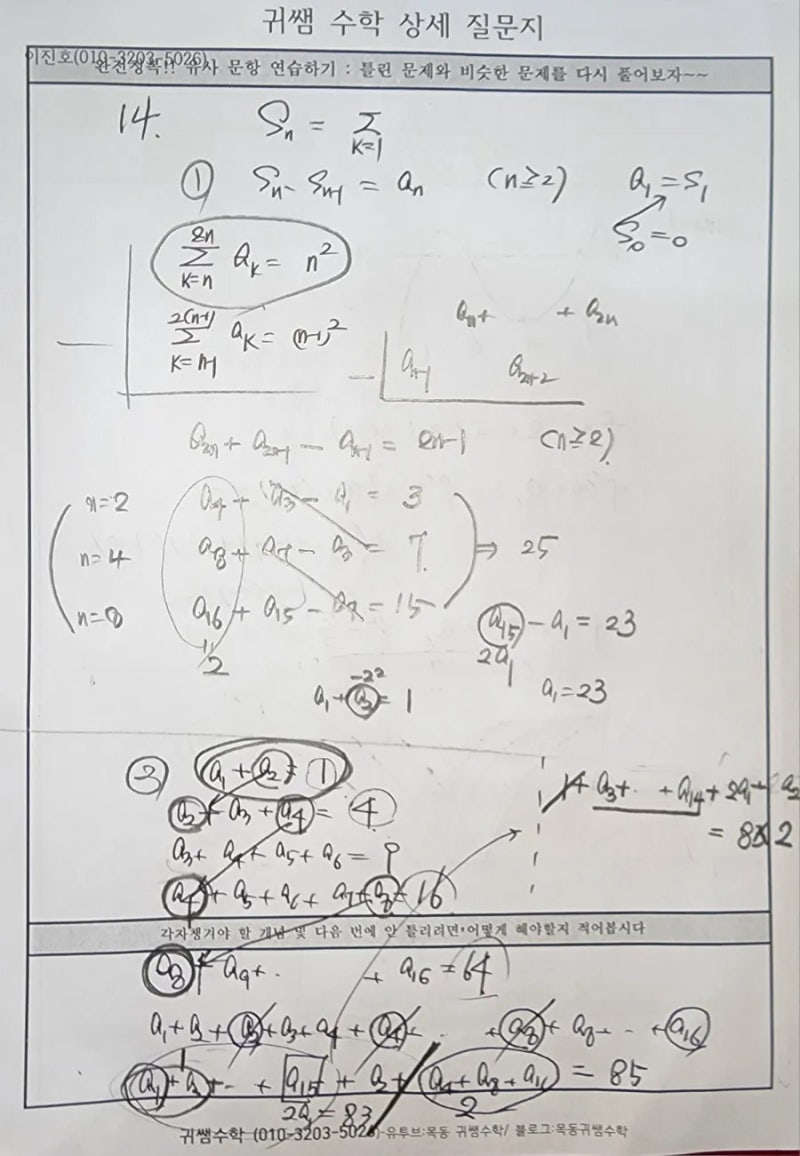 귀쌤 수학 상세 질문지
이진호(010-3203-5026)
완전정복!! 유사 문항 연습하기 : 틀린 문제와 비슷한 문제를 다시 풀어보자~~
14. Sₙ = Σ K=1
① Sₙ - Sₙ₋₁ = aₙ (n≥2) a₁ = S₁
S₀ = 0
2n Σ K=n a_K = n²
2(n-1) Σ K=n-1 a_K = (n-1)²
aₙ + + a₂ₙ
— aₙ₋₁ a₂ₙ₋₂
a₂ₙ + a₂ₙ₋₁ - aₙ₋₁ = 2n-1 (n≥2)
n=2 a₄ + a₃ - a₁ = 3
n=4 a₈ + a₇ - a₃ = 7 ⇒ 25
n=8 a₁₆ + a₁₅ - a₇ = 15
2
a₁₅ - a₁ = 23
2a₁
a₁ = 23
-2²
a₁ + a₂ = 1
② a₁ + a₂ = 1
a₂ + a₃ + a₄ = 4
a₃ + a₄ + a₅ + a₆ = 9
a₄ + a₅ + a₆ + a₇ + a₈ = 16
a₃ + ·· + a₁₄ + 2a₁ + a₂
= 82
각자챙겨야 할 개념 및 다음 번에 안 틀리려면 어떻게 해야할지 적어봅시다
a₈ + a₉ + · + a₁₆ = 64
a₁ + a₂ + a₂ + a₃ + a₄ + a₄ + · + a₈ + a₈ + ·· + a₁₆
a₁ + a₂ + ·· + a₁₅ + a₂ + a₄ + a₈ + a₁₆ = 85
2a₁ = 83 2
귀쌤수학 (010-3203-5026)-유투브:목동 귀쌤수학/ 블로그:목동귀쌤수학